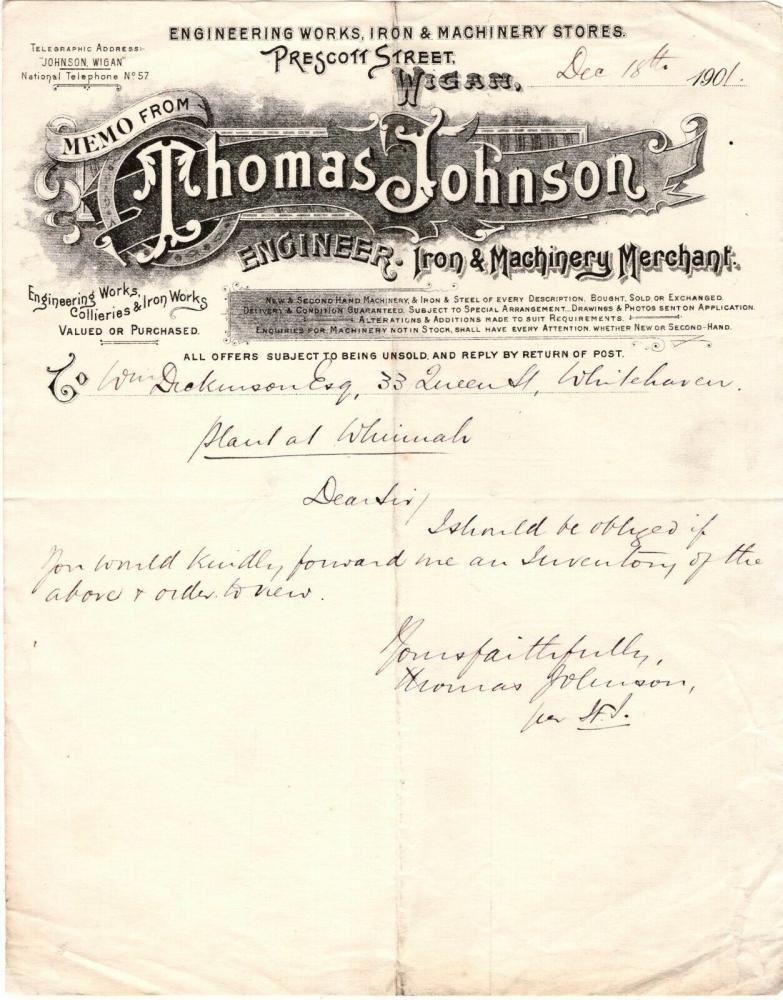 ENGINEERING WORKS, IRON & MACHINERY STORES.
TELEGRAPHIC ADDRESS:-
"JOHNSON, WIGAN"
National Telephone No 57
PRESCOTT STREET,
WIGAN, Dec 18th. 1901.
MEMO FROM
Thomas Johnson
ENGINEER. Iron & Machinery Merchant.
Engineering Works,
Collieries & Iron Works
VALUED OR PURCHASED.
NEW & SECOND HAND MACHINERY, & IRON & STEEL OF EVERY DESCRIPTION, BOUGHT, SOLD OR EXCHANGED.
DELIVERY & CONDITION GUARANTEED. SUBJECT TO SPECIAL ARRANGEMENT. DRAWINGS & PHOTOS SENT ON APPLICATION.
ALTERATIONS & ADDITIONS MADE TO SUIT REQUIREMENTS.
ENQUIRIES FOR MACHINERY NOT IN STOCK, SHALL HAVE EVERY ATTENTION, WHETHER NEW OR SECOND-HAND.
ALL OFFERS SUBJECT TO BEING UNSOLD, AND REPLY BY RETURN OF POST.
To Wm Dickinson Esq, 33 Queen St, Whitehaven.
Plant at Whinnah
Dear Sir/
I should be obliged if
you would kindly forward me an Inventory of the
above & order to view.
Yours faithfully,
Thomas Johnson,
per